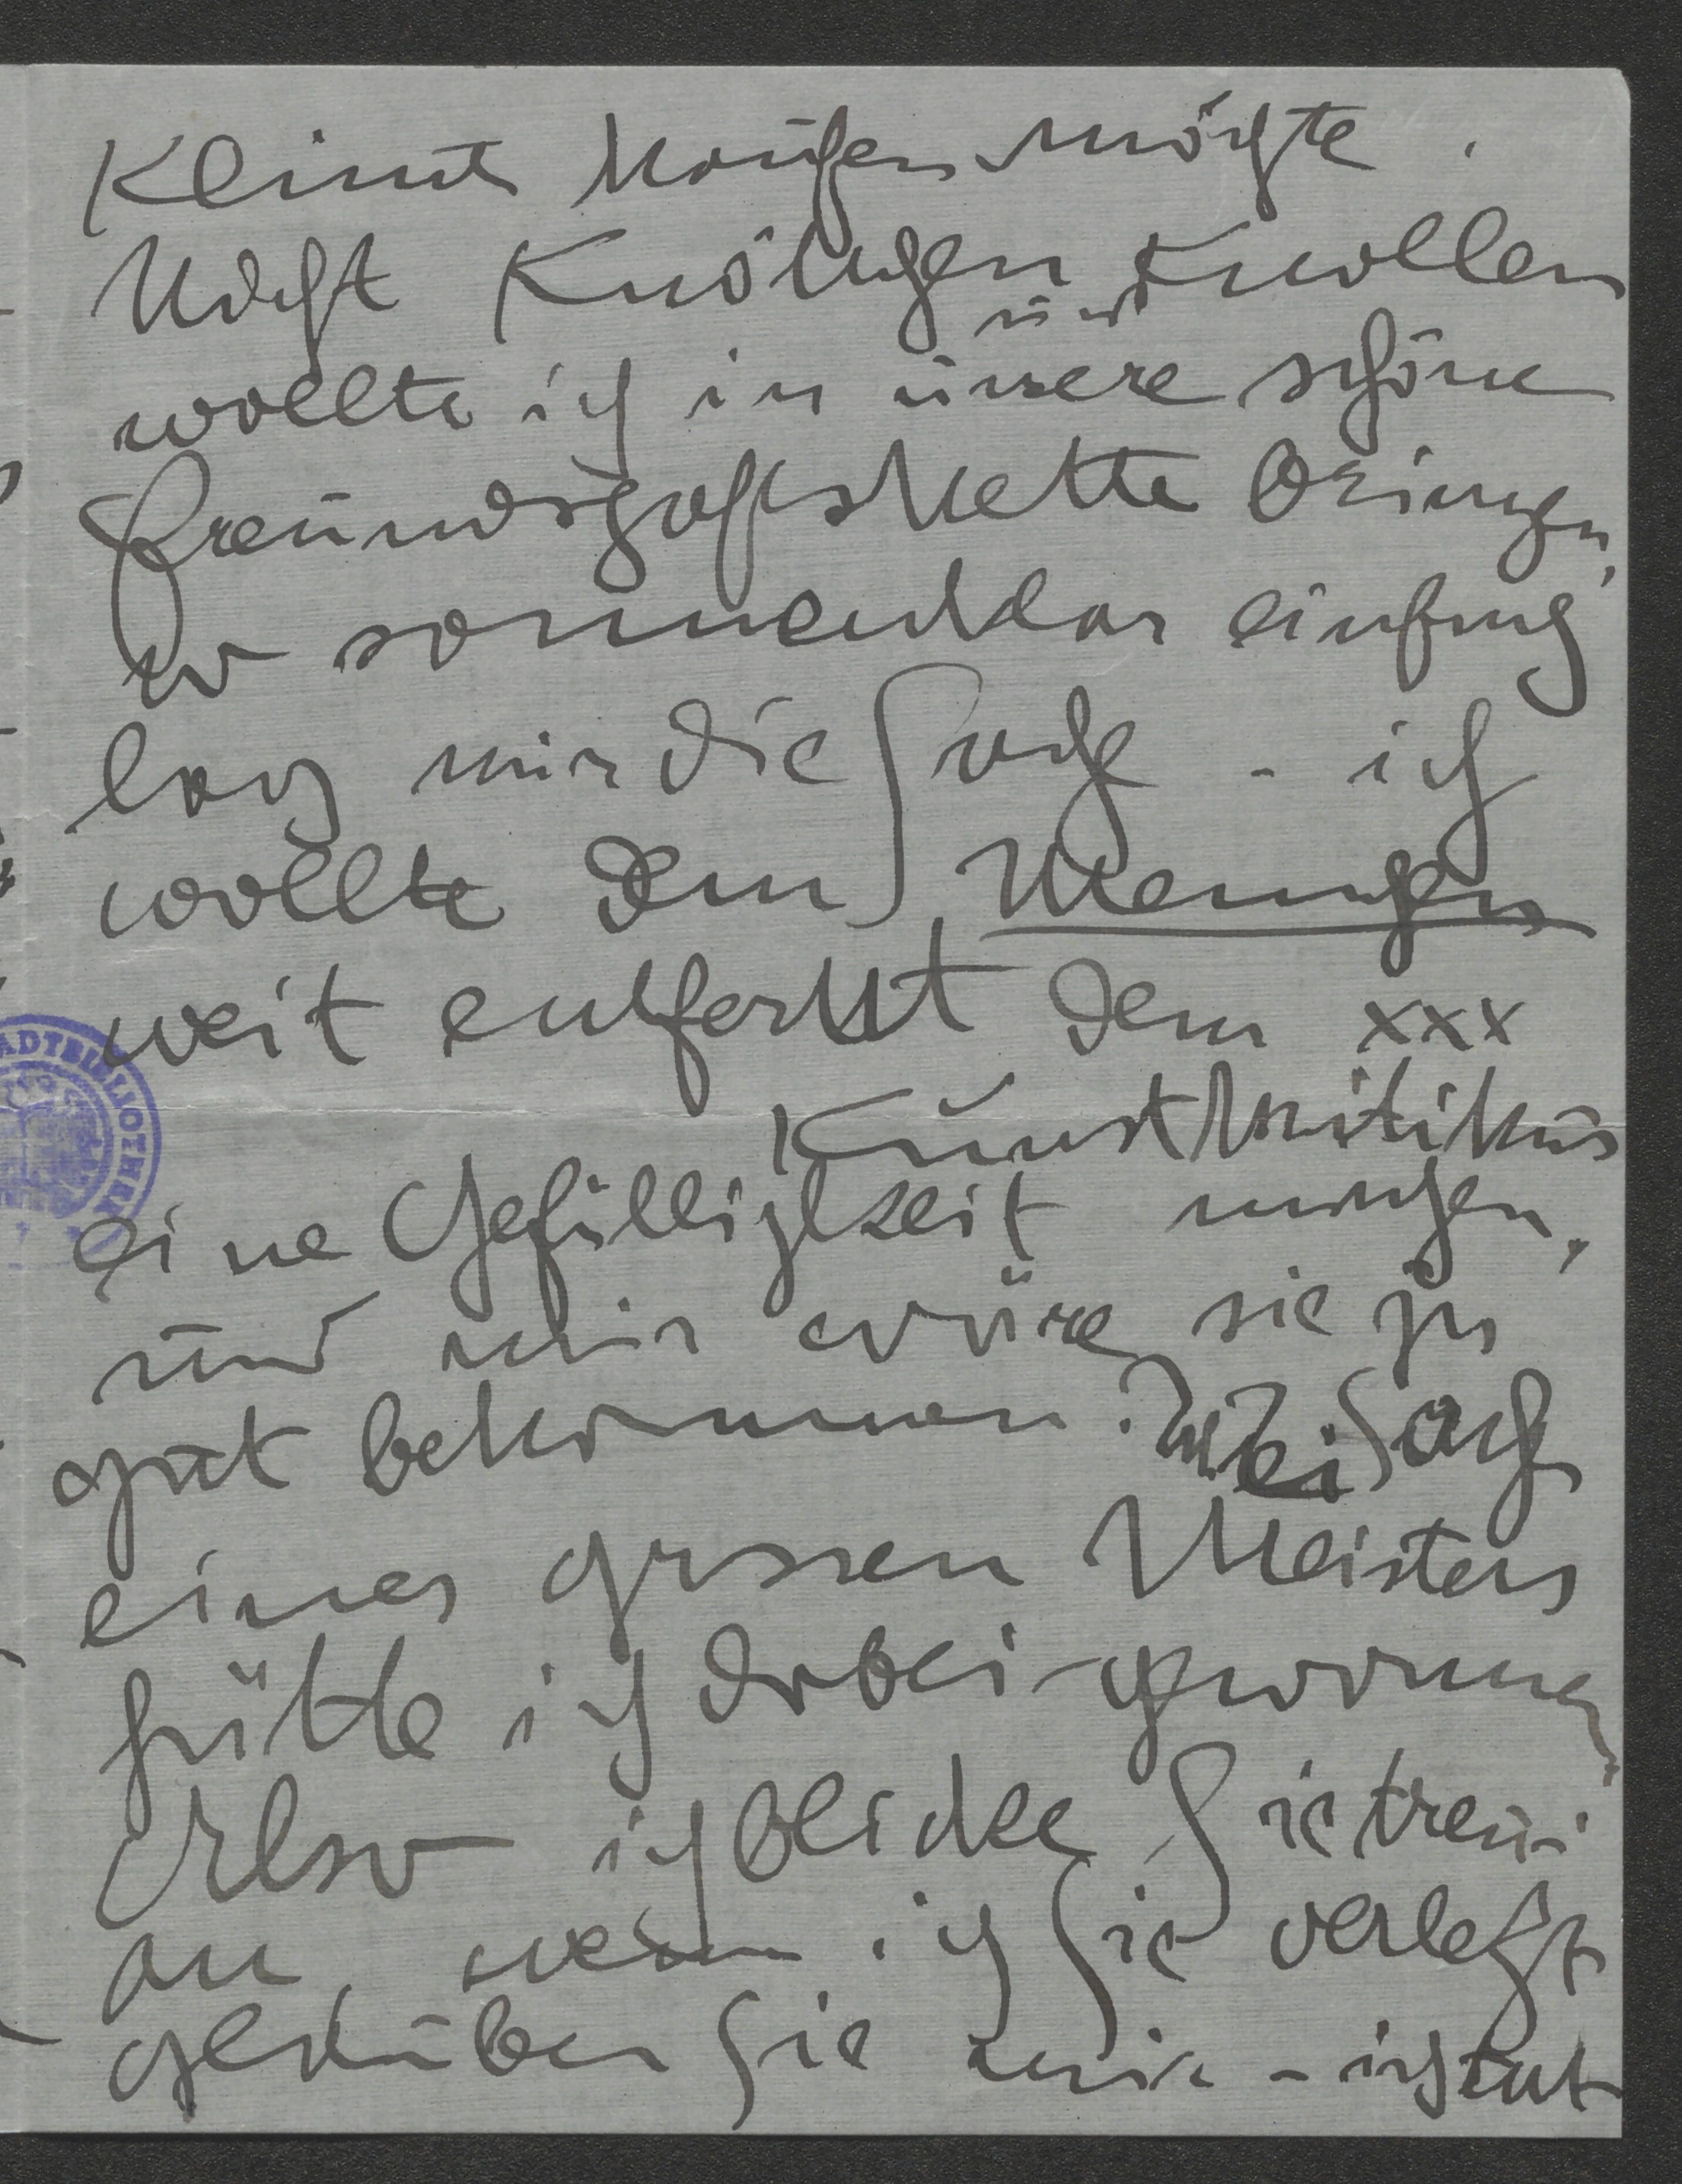 Klimt kaufen möchte.
Nicht Knötchen und Knollen
wollte ich in unsere schöne
Freundschaftskette bringen,
so sonnenklar einfach
lag mir die Sache - ich
wollte dem Menschen
weit entfernt dem xxx
Kunstkritikus
eine Gefälligkeit machen,
und mir wäre sie zu
gut bekommen. Zwei Sach
eines grossen Meisters
hätte ich dabei gewonnen
Also ich blicke Sie treu
an, wenn ich Sie verletzt
glauben Sie mir - ich tat
STADTBIBLIOTHEK